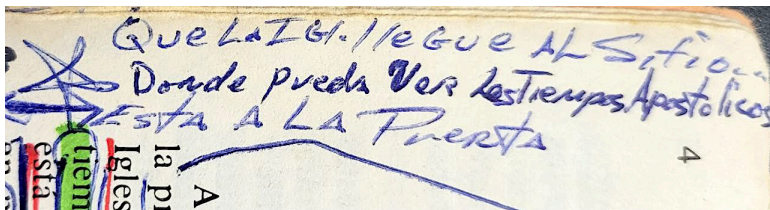 Que La IGl. lleGue AL Sitio...
Donde pueda Ver LosTiempos Apostolicos
Esta A LA Puerta
4
A
la pr
Igles
tiem
esta